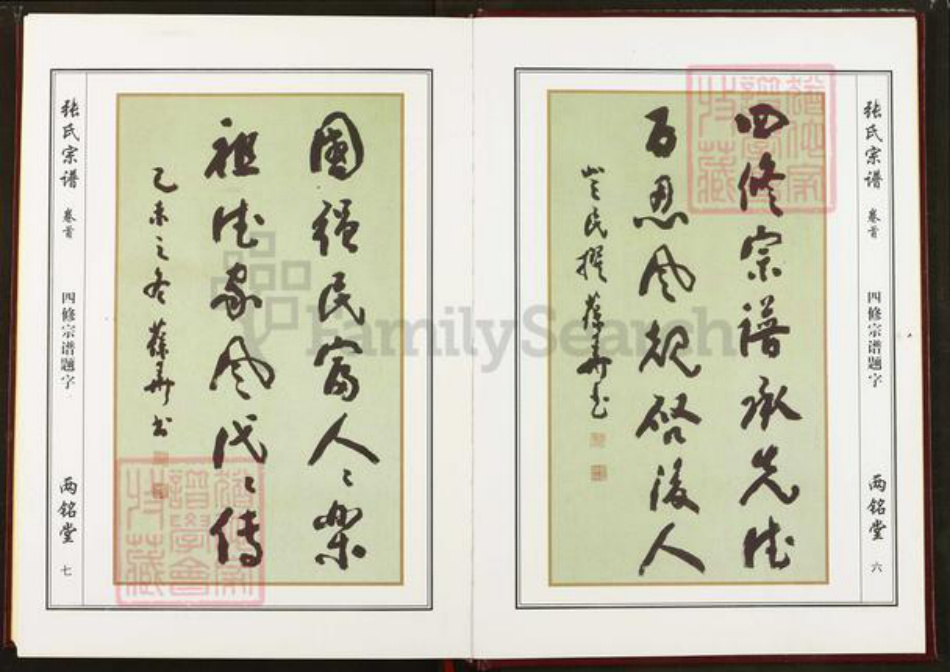 张氏宗谱 卷首 四修宗谱题字 两铭堂 六
四修宗谱承先德
百忍风规启後人
岂民撰 葆华书
國强民富人人樂
祖德家风代代传
乙未之冬 葆华书
张氏宗谱 卷首 四修宗谱题字 两铭堂 七
FamilySearch